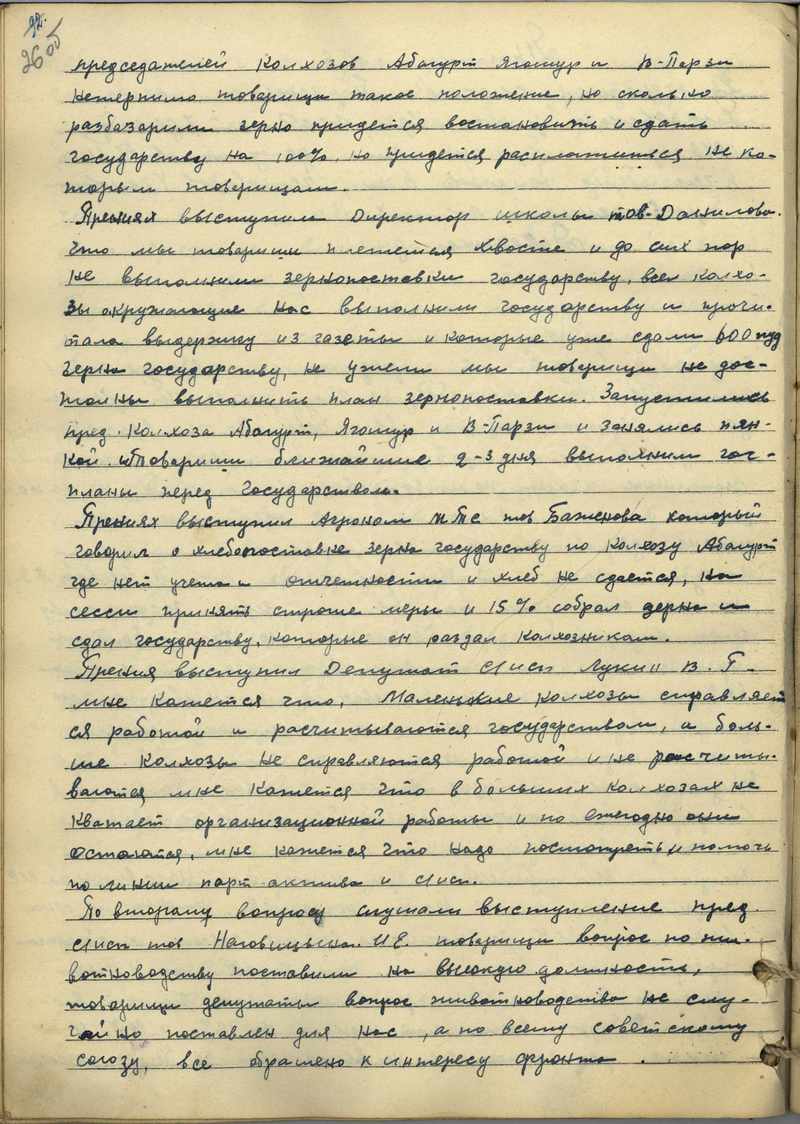 92.
26 об
председателей Колхозов Абагурт Ягошур и В-Парзи
нетерпимо товарищи такое положение, но сколько
разбазарили зерно придется востановить и сдать
государству на 100%, но придется расплатиться не ко-
торым товарищам.
Прениях выступила Директор школы тов. Данилова.
что мы товарищи плетемся хвосте и до сих пор
не выполнили зернопоставки государству, все колхо-
зы окружающие нас выполнили государству и прочи-
тала выдержку из газеты и которые уже сдали 600 пуд
зерна государству, не ужели мы товарищи не дос-
тойны выполнить план зернопоставки. Запустились
пред. Колхоза Абагурт, Ягошур и В-Парзи и занялись пян-
кой. Товарищи ближайшие 2-3 дня выполним гос-
планы перед Государством.
Прениях выступил Агроном МТС тов Баженова который
говорил о хлебопоставке зерна государству по колхозу Абагурт
где нет учета и отчетности и хлеб не сдается, на
сессии принять строгие меры и 15% собрал зерна и
сдал государству, которые он раздал колхозникам.
Прения выступил Депутат с/исп Лукин В. Г.
мне кажется что, Маленькие колхозы справляет
ся работой и расчитываются государством, а боль-
ше колхозы не справляются работой и не расчиты-
ваются мне кажется что в больших колхозах не
хватает организационной работы и по ежегодно они
остаются, мне кажется что надо посмотреть и помочь
по линии парт актива и с/исп.
По второму вопросу слушали выступление пред.
с/исп тов Наговицына И Е. товарищи вопрос по жи-
вотноводству поставили на высокую должность,
товарищи депутаты вопрос животноводства не слу-
чайно поставлен для нас, а по всему советскому
союзу, все обращено к интересу фронта.